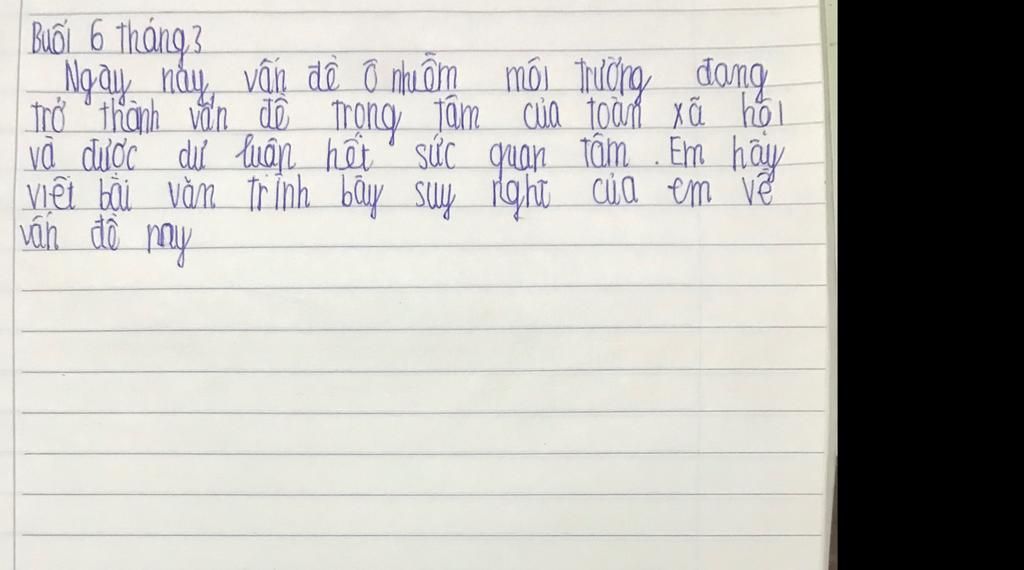 Buổi 6 tháng 3
Ngày nay, vấn đề ô nhiễm môi trường đang
trở thành vấn đề trọng tâm của toàn xã hội
và được dư luận hết sức quan tâm. Em hãy
viết bài văn trình bày suy nghĩ của em về
vấn đề này